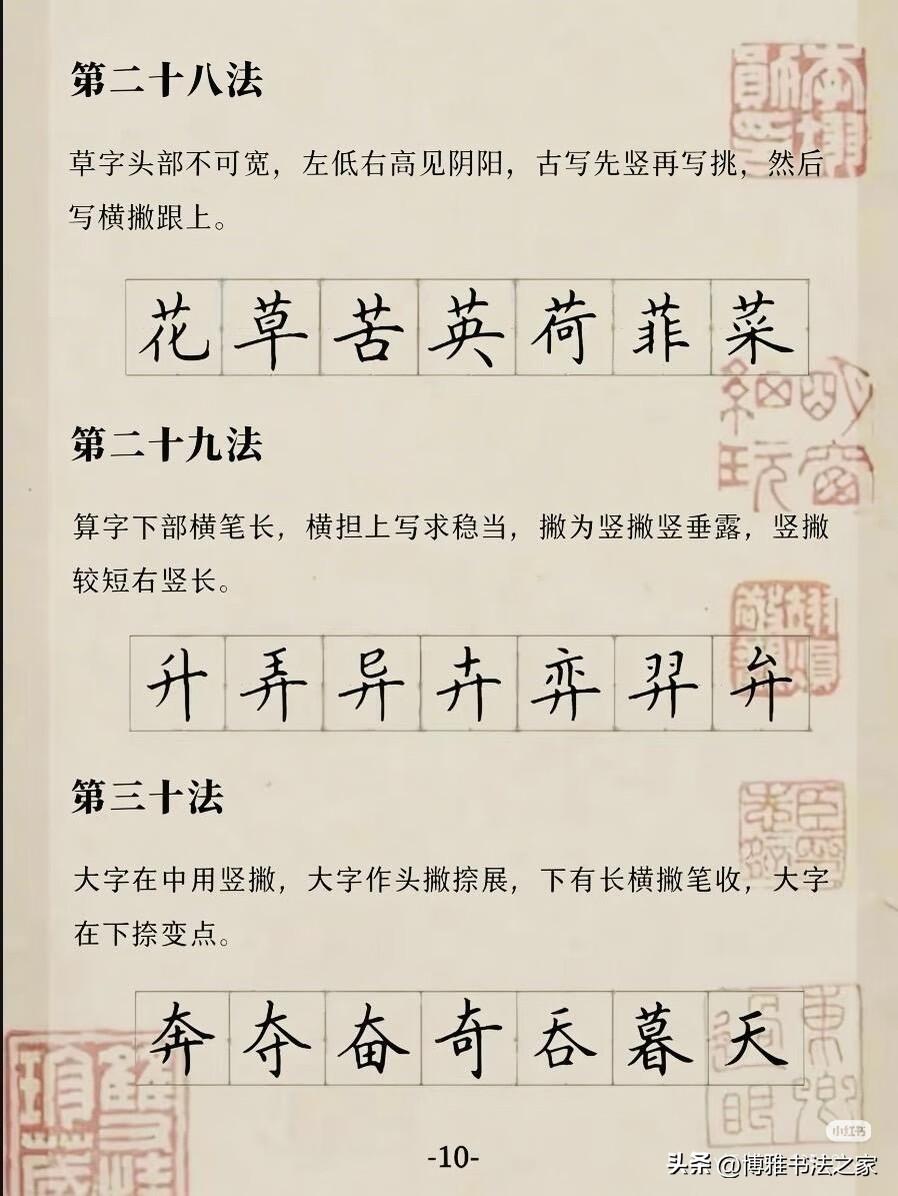 第二十八法
草字头部不可宽，左低右高见阴阳，古写先竖再写挑，然后
写横撇跟上。
花草苦英荷菲菜
第二十九法
算字下部横笔长，横担上写求稳当，撇为竖撇竖垂露，竖撇
较短右竖长。
升弄异卉弈羿弁
第三十法
大字在中用竖撇，大字作头撇捺展，下有长横撇笔收，大字
在下捺变点。
奔夺奋奇吞暮天
-10-
小红书
头条 @博雅书法之家